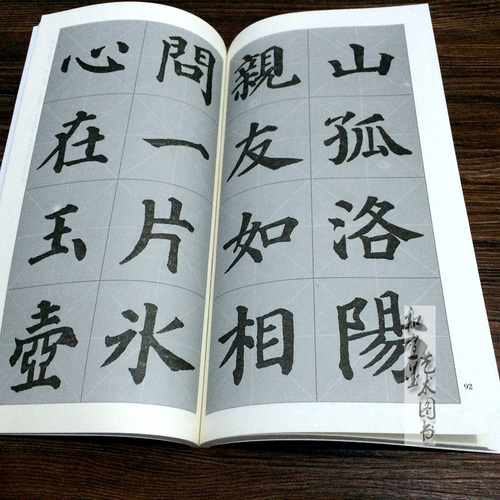 山孤洛陽
親友如相
問一片氷
心在玉壺
92
艺术图书